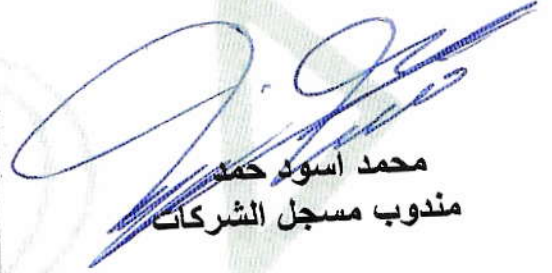 محمد اسود حمد
مندوب مسجل الشركات